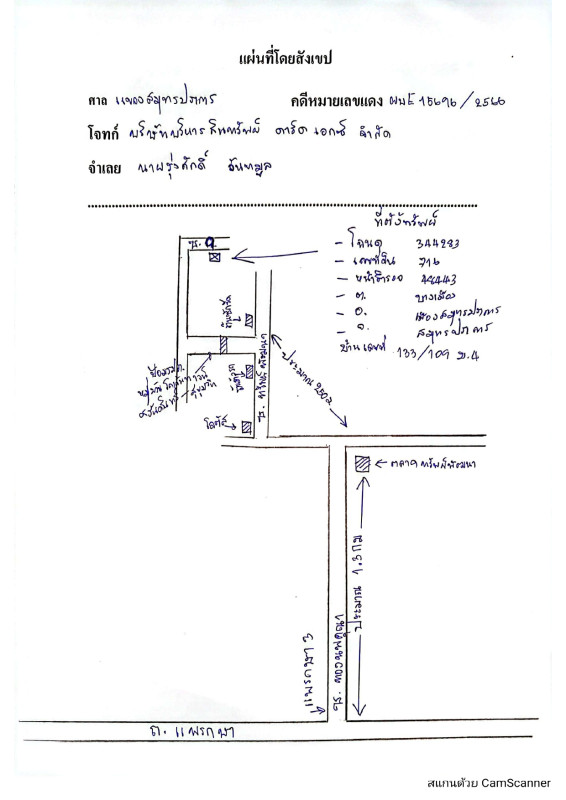 แผ่นที่โดยสังเขป
ศาล แขวงสมุทรปราการ คดีหมายเลขแดง ผบE 15696/2566
โจทก์ บริษัทบริหารสินทรัพย์ คาร์ด เอกซ์ จำกัด
จำเลย นายรุ่งศักดิ์
ที่ตั้งทรัพย์
- โฉนด 344283
- เลขที่ดิน 716
- หน้าสำรวจ 44443
- ต. บางเมือง
- อ. เมืองสมุทรปราการ
- จ. สมุทรปราการ
บ้านเลขที่ 133/109 ม.4
ซ. 9
ประมาณ 250 ม
ซ. ทรัพย์พัฒนา
โลตัส
← ตลาดทรัพย์พัฒนา
ประมาณ 1.3 กม
แพรกษา 3
ถ. แพรกษา
สแกนด้วย CamScanner